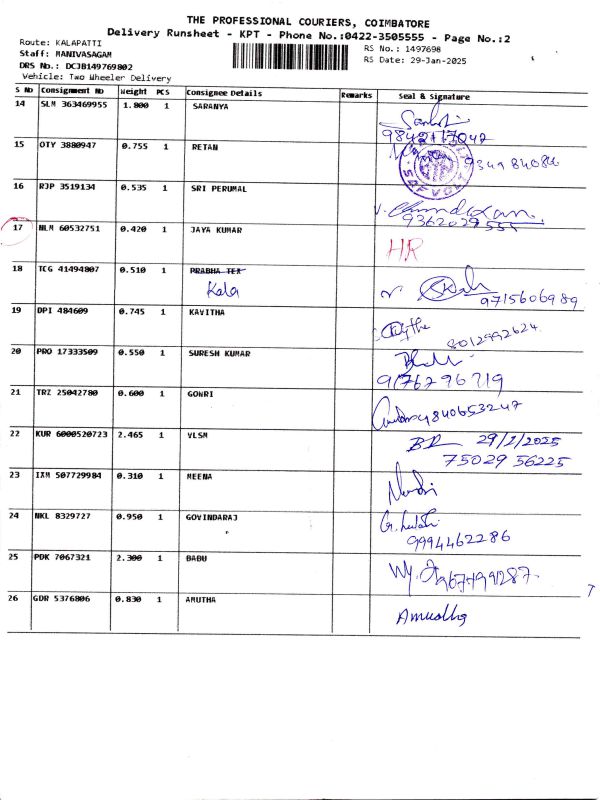 THE PROFESSIONAL COURIERS, COIMBATORE
Delivery Runsheet - KPT - Phone No.:0422-3505555 - Page No.:2
Route: KALAPATTI
RS No.: 1497698
Staff: MANIVASAGAM
RS Date: 29-Jan-2025
DRS No.: DCJB149769802
Vehicle: Two Wheeler Delivery
S No Consignment No Weight PCS Consignee Details Remarks Seal & Signature
14 SLM 363469955 1.800 1 SARANYA
15 OTY 3880947 0.755 1 RETAN
16 RJP 3519134 0.535 1 SRI PERUMAL
9362029555
17 NLM 60532751 0.420 1 JAYA KUMAR HR
18 TCG 41494807 0.510 1 PRABHA TEX
Kala
9715606989
19 DPI 484609 0.745 1 KAVITHA
8012992624
20 PRO 17333509 0.550 1 SURESH KUMAR
9176296719
21 TRZ 25042780 0.600 1 GONRI
22 KUR 6000520723 2.465 1 VLSM
75029 56225
23 IXM 507729984 0.310 1 MEENA
24 NKL 8329727 0.950 1 GOVINDARAJ
9994462286
25 PDK 7067321 2.300 1 BABU
26 GDR 5376806 0.830 1 AMUTHA